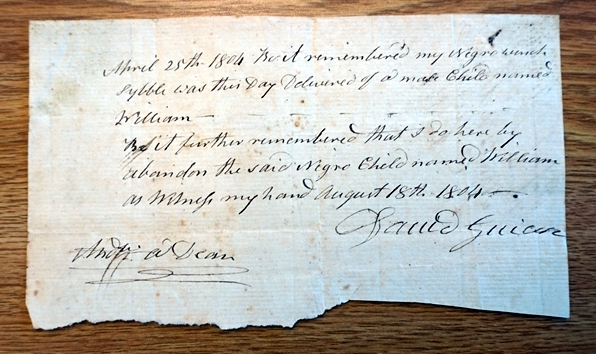 April 25th 1804 Be it remembered my Negro wench
Sybble was this Day Delivered of a male Child named
William
Be it further remembered that I do here by
abandon the said Negro Child named William
as Witness my hand August 18th 1804
David
Dean